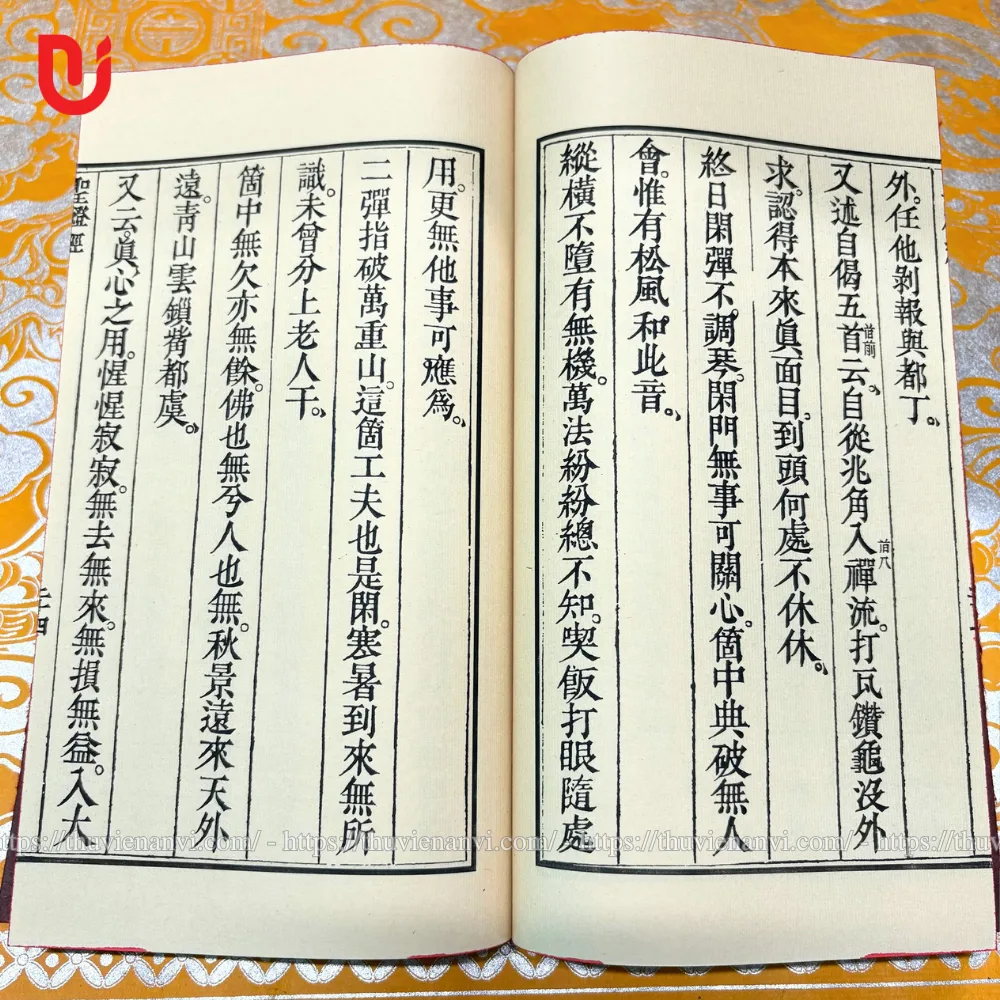 外。任他剝報與都丁。
又述自偈五首云。自從兆角入禪流。打瓦鑽龜没外
求。認得本來眞面目。到頭何處不休休。
終日閑彈不調琴。閑門無事可關心。箇中典破無人
會。惟有松風和此音。
縱橫不墮有無機。萬法紛紛總不知。喫飯打眼隨處
用。更無他事可應爲。
二彈指破萬重山。這箇工夫也是閑。寒暑到來無所
識。未曾分上老人干。
箇中無欠亦無餘。佛也無兮人也無。秋景遠來天外
遠。青山雲鎻觜都虞。
又云。眞心之用。惺惺寂寂。無去無來。無損無益。入大
聖燈經
二十四
https://thuvienanvi.com/ - https://thuvienanvi.com/ - https://thuvienanvi.com/ - https://thuvi